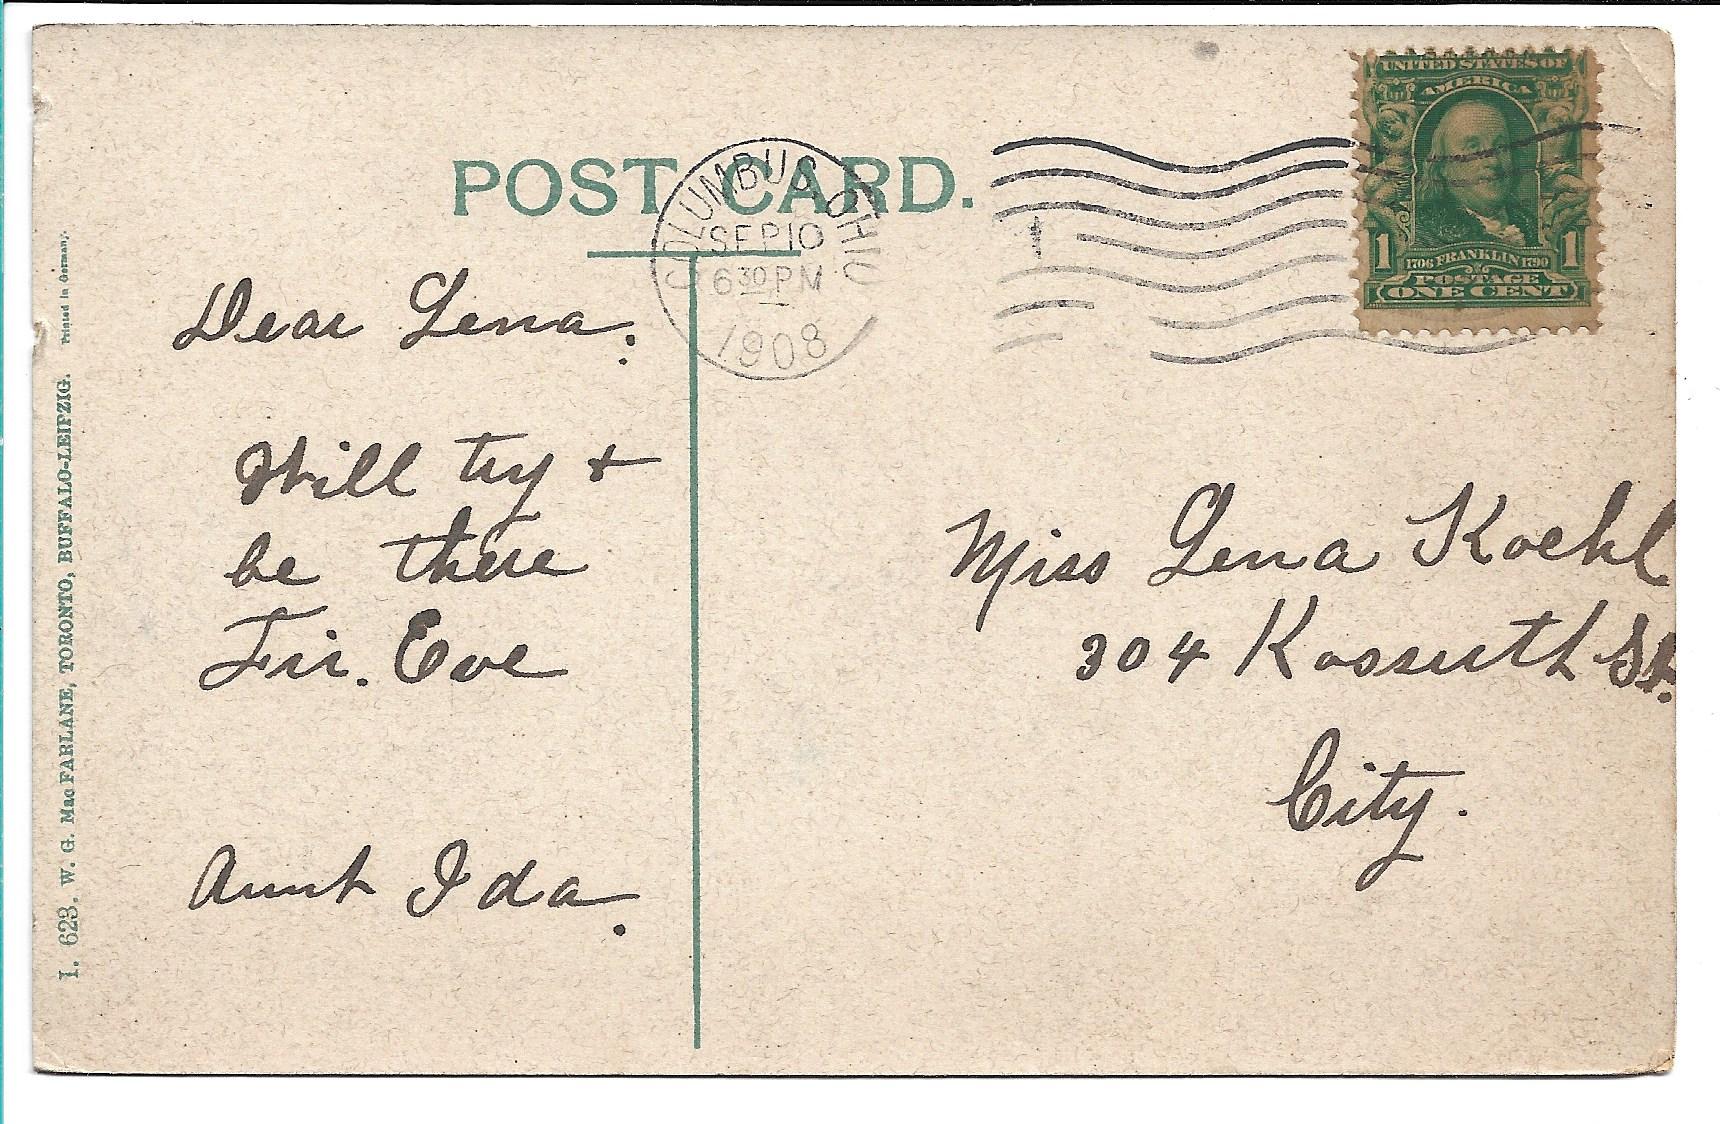 POST CARD.
COLUMBUS, OHIO
SEP 10
6 30 PM
1908
1
UNITED STATES OF
AMERICA
1 1
1706 FRANKLIN 1790
POSTAGE
ONE CENT
Dear Lena.
Will try +
be there
Fri. Eve
Aunt Ida.
Miss Lena Koehl
304 Kossuth St.
City.
I. 623. W. G. Mac FARLANE, TORONTO, BUFFALO-LEIPZIG. Printed in Germany.